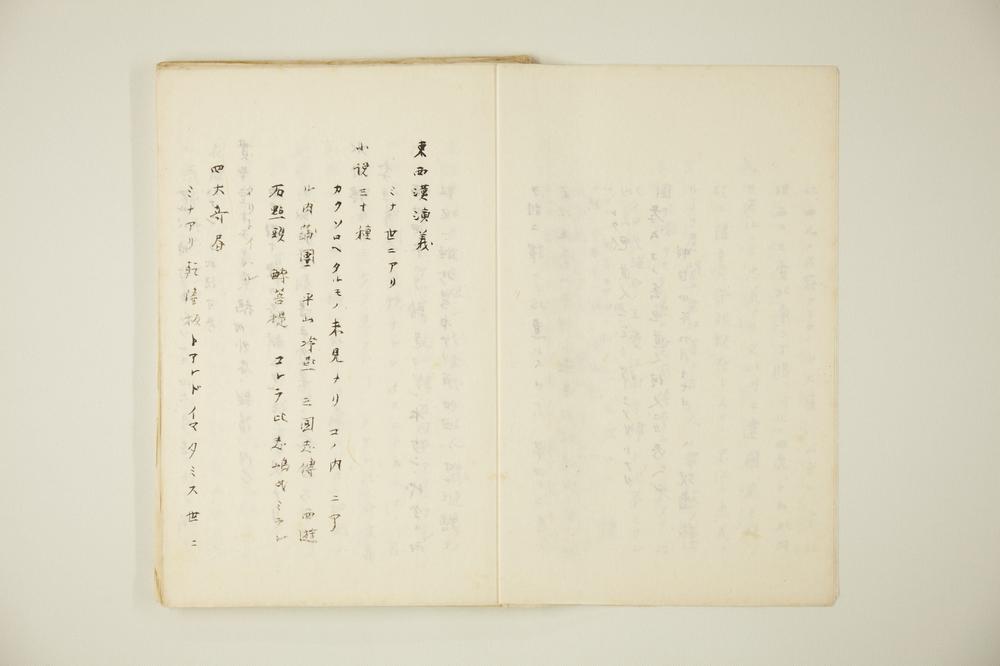 東西漢演義
ミナ世ニアリ
小説三十種
カクソロヘタルモノ未見ナリコノ内ニ
ル肉蒲團 平山冷燕 三国志傳 西遊
石點頭 醉菩提 コレラ此志嶋氏ミ
四大奇書
ミナアリ乾隆板トアレドイマタミス世ニ